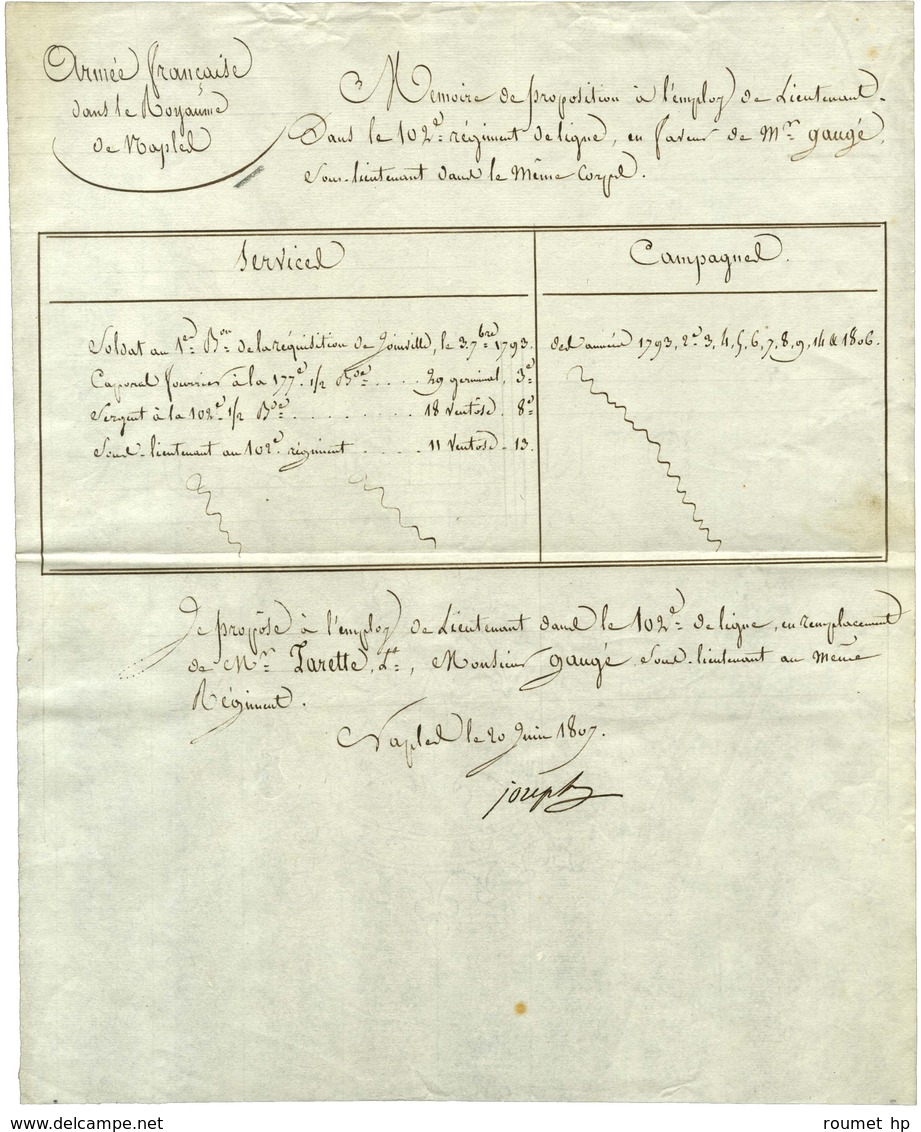 Armée française
dans le Royaume
de Naples
Memoire de proposition à l'employ de Lieutenant
Dans le 102e régiment de ligne, en faveur de Mr gaugé,
Sous-lieutenant dans le Même Corps.
Services
Campagnes.
Soldat au 1er Bon de la réquisition de Joinville, le 3. 7bre 1793.
des années 1793, 2e 3, 4, 5, 6, 7, 8, 9, 14 & 1806.
Caporal fourrier à la 177e 1/2 Bde .... 29 germinal, 3e
Sergent à la 102e 1/2 Bde ......... 18 Ventose. 8e
Sous-lieutenant au 102e régiment .... 11 Ventose. 13.
Je propose à l'employ de Lieutenant dans le 102e de ligne, en remplacement
de Mr Larette, Lt, Monsieur gaugé sous-lieutenant au même
Régiment.
Naples le 20 Juin 1807.
joseph
roumet hp